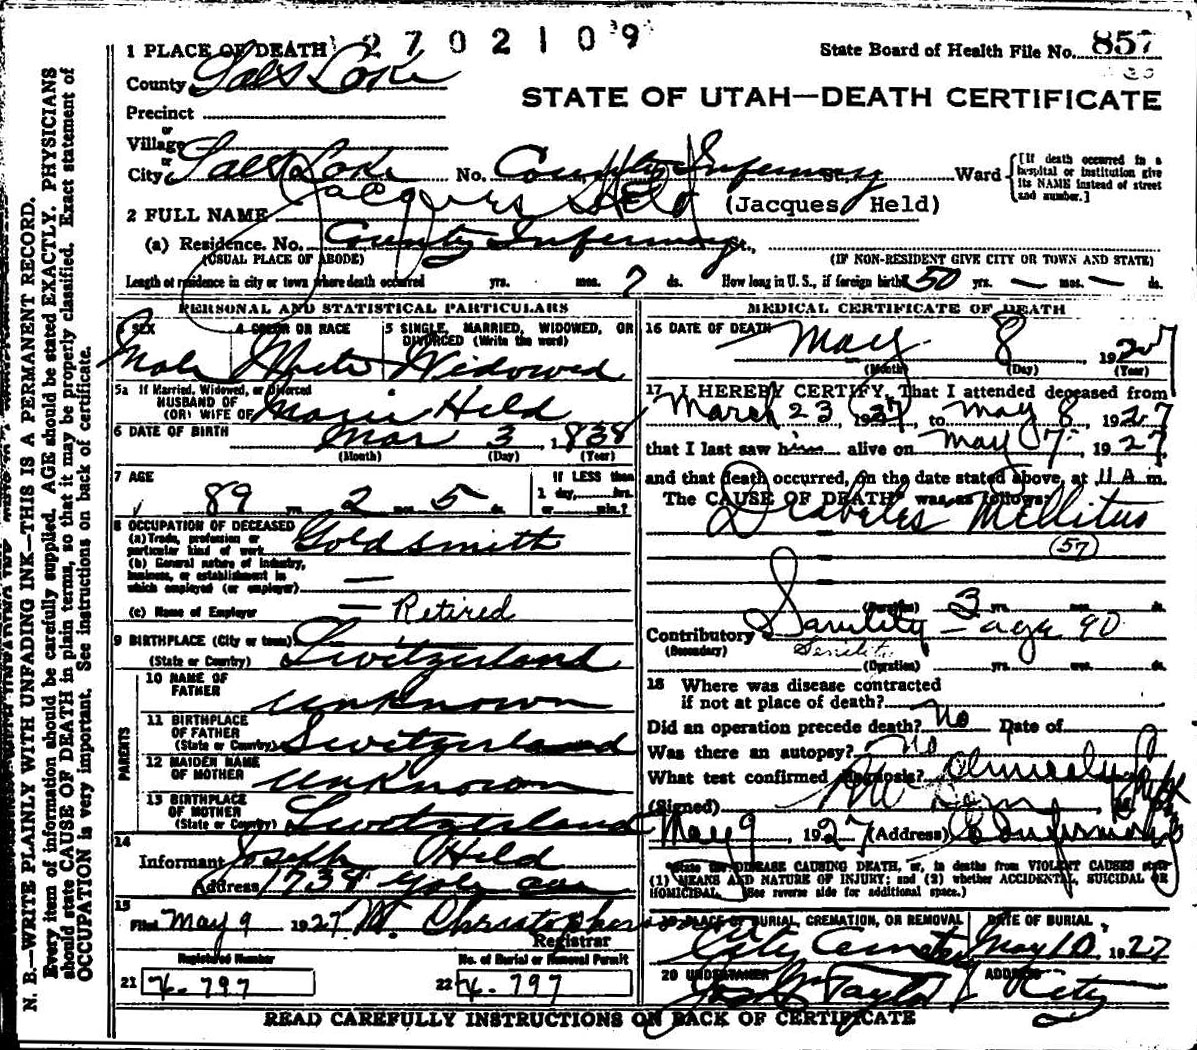 2702109
State Board of Health File No. 857
STATE OF UTAH—DEATH CERTIFICATE
1 PLACE OF DEATH
County Salt Lake
Precinct
or
Village
or
City Salt Lake No. County Infirmary St., Ward
[If death occurred in a hospital or institution give its NAME instead of street and number.]
2 FULL NAME Jacques Held (Jacques Held)
(a) Residence. No. County Infirmary St.,
(USUAL PLACE OF ABODE) (IF NON-RESIDENT GIVE CITY OR TOWN AND STATE)
Length of residence in city or town where death occurred yrs. mos. 7 ds. How long in U. S., if foreign birth? 50 yrs. — mos. — ds.
PERSONAL AND STATISTICAL PARTICULARS
3 SEX 4 COLOR OR RACE 5 SINGLE, MARRIED, WIDOWED, OR DIVORCED (Write the word)
Male White Widowed
5a If Married, Widowed, or Divorced
HUSBAND OF
(OR) WIFE OF Marie Held
6 DATE OF BIRTH Mar 3 1838
(Month) (Day) (Year)
7 AGE If LESS than
89 yrs. 2 mos. 5 ds. 1 day, hrs.
or min.?
8 OCCUPATION OF DECEASED
(a) Trade, profession or
particular kind of work Goldsmith
(b) General nature of industry,
business, or establishment in
which employed (or employer) —
(c) Name of Employer — Retired
9 BIRTHPLACE (City or town)
(State or Country) Switzerland
PARENTS
10 NAME OF
FATHER unknown
11 BIRTHPLACE
OF FATHER
(State or Country) Switzerland
12 MAIDEN NAME
OF MOTHER unknown
13 BIRTHPLACE
OF MOTHER
(State or Country) Switzerland
14
Informant Joseph Held
Address 1734
15
Filed May 9 1927. Christopherson
Registrar
Registered Number No. of Burial or Removal Permit
21 797 22 797
MEDICAL CERTIFICATE OF DEATH
16 DATE OF DEATH
May 8, 1927
(Month) (Day) (Year)
17 I HEREBY CERTIFY, That I attended deceased from
March 23, 1927, to May 8, 1927
that I last saw him alive on May 7, 1927
and that death occurred, on the date stated above, at 11 A m.
The CAUSE OF DEATH* was as follows:
Diabetes Mellitus
(57)
(Duration) 3 yrs. mos. ds.
Contributory Senility — age 90
(Secondary) Senility
(Duration) yrs. mos. ds.
18 Where was disease contracted
if not at place of death?
Did an operation precede death? No Date of
Was there an autopsy? No
What test confirmed diagnosis?
(Signed)
May 9, 1927 (Address) Infirmary
*State the DISEASE CAUSING DEATH, or, in deaths from VIOLENT CAUSES state
(1) MEANS AND NATURE OF INJURY; and (2) whether ACCIDENTAL, SUICIDAL OR
HOMICIDAL. (See reverse side for additional space.)
19 PLACE OF BURIAL, CREMATION, OR REMOVAL DATE OF BURIAL
City Cemetery May 10, 1927
20 UNDERTAKER ADDRESS
Taylor City
READ CAREFULLY INSTRUCTIONS ON BACK OF CERTIFICATE
N. B.—WRITE PLAINLY WITH UNFADING INK—THIS IS A PERMANENT RECORD.
Every item of information should be carefully supplied. AGE should be stated EXACTLY. PHYSICIANS
should state CAUSE OF DEATH in plain terms, so that it may be properly classified. Exact statement of
OCCUPATION is very important. See instructions on back of certificate.